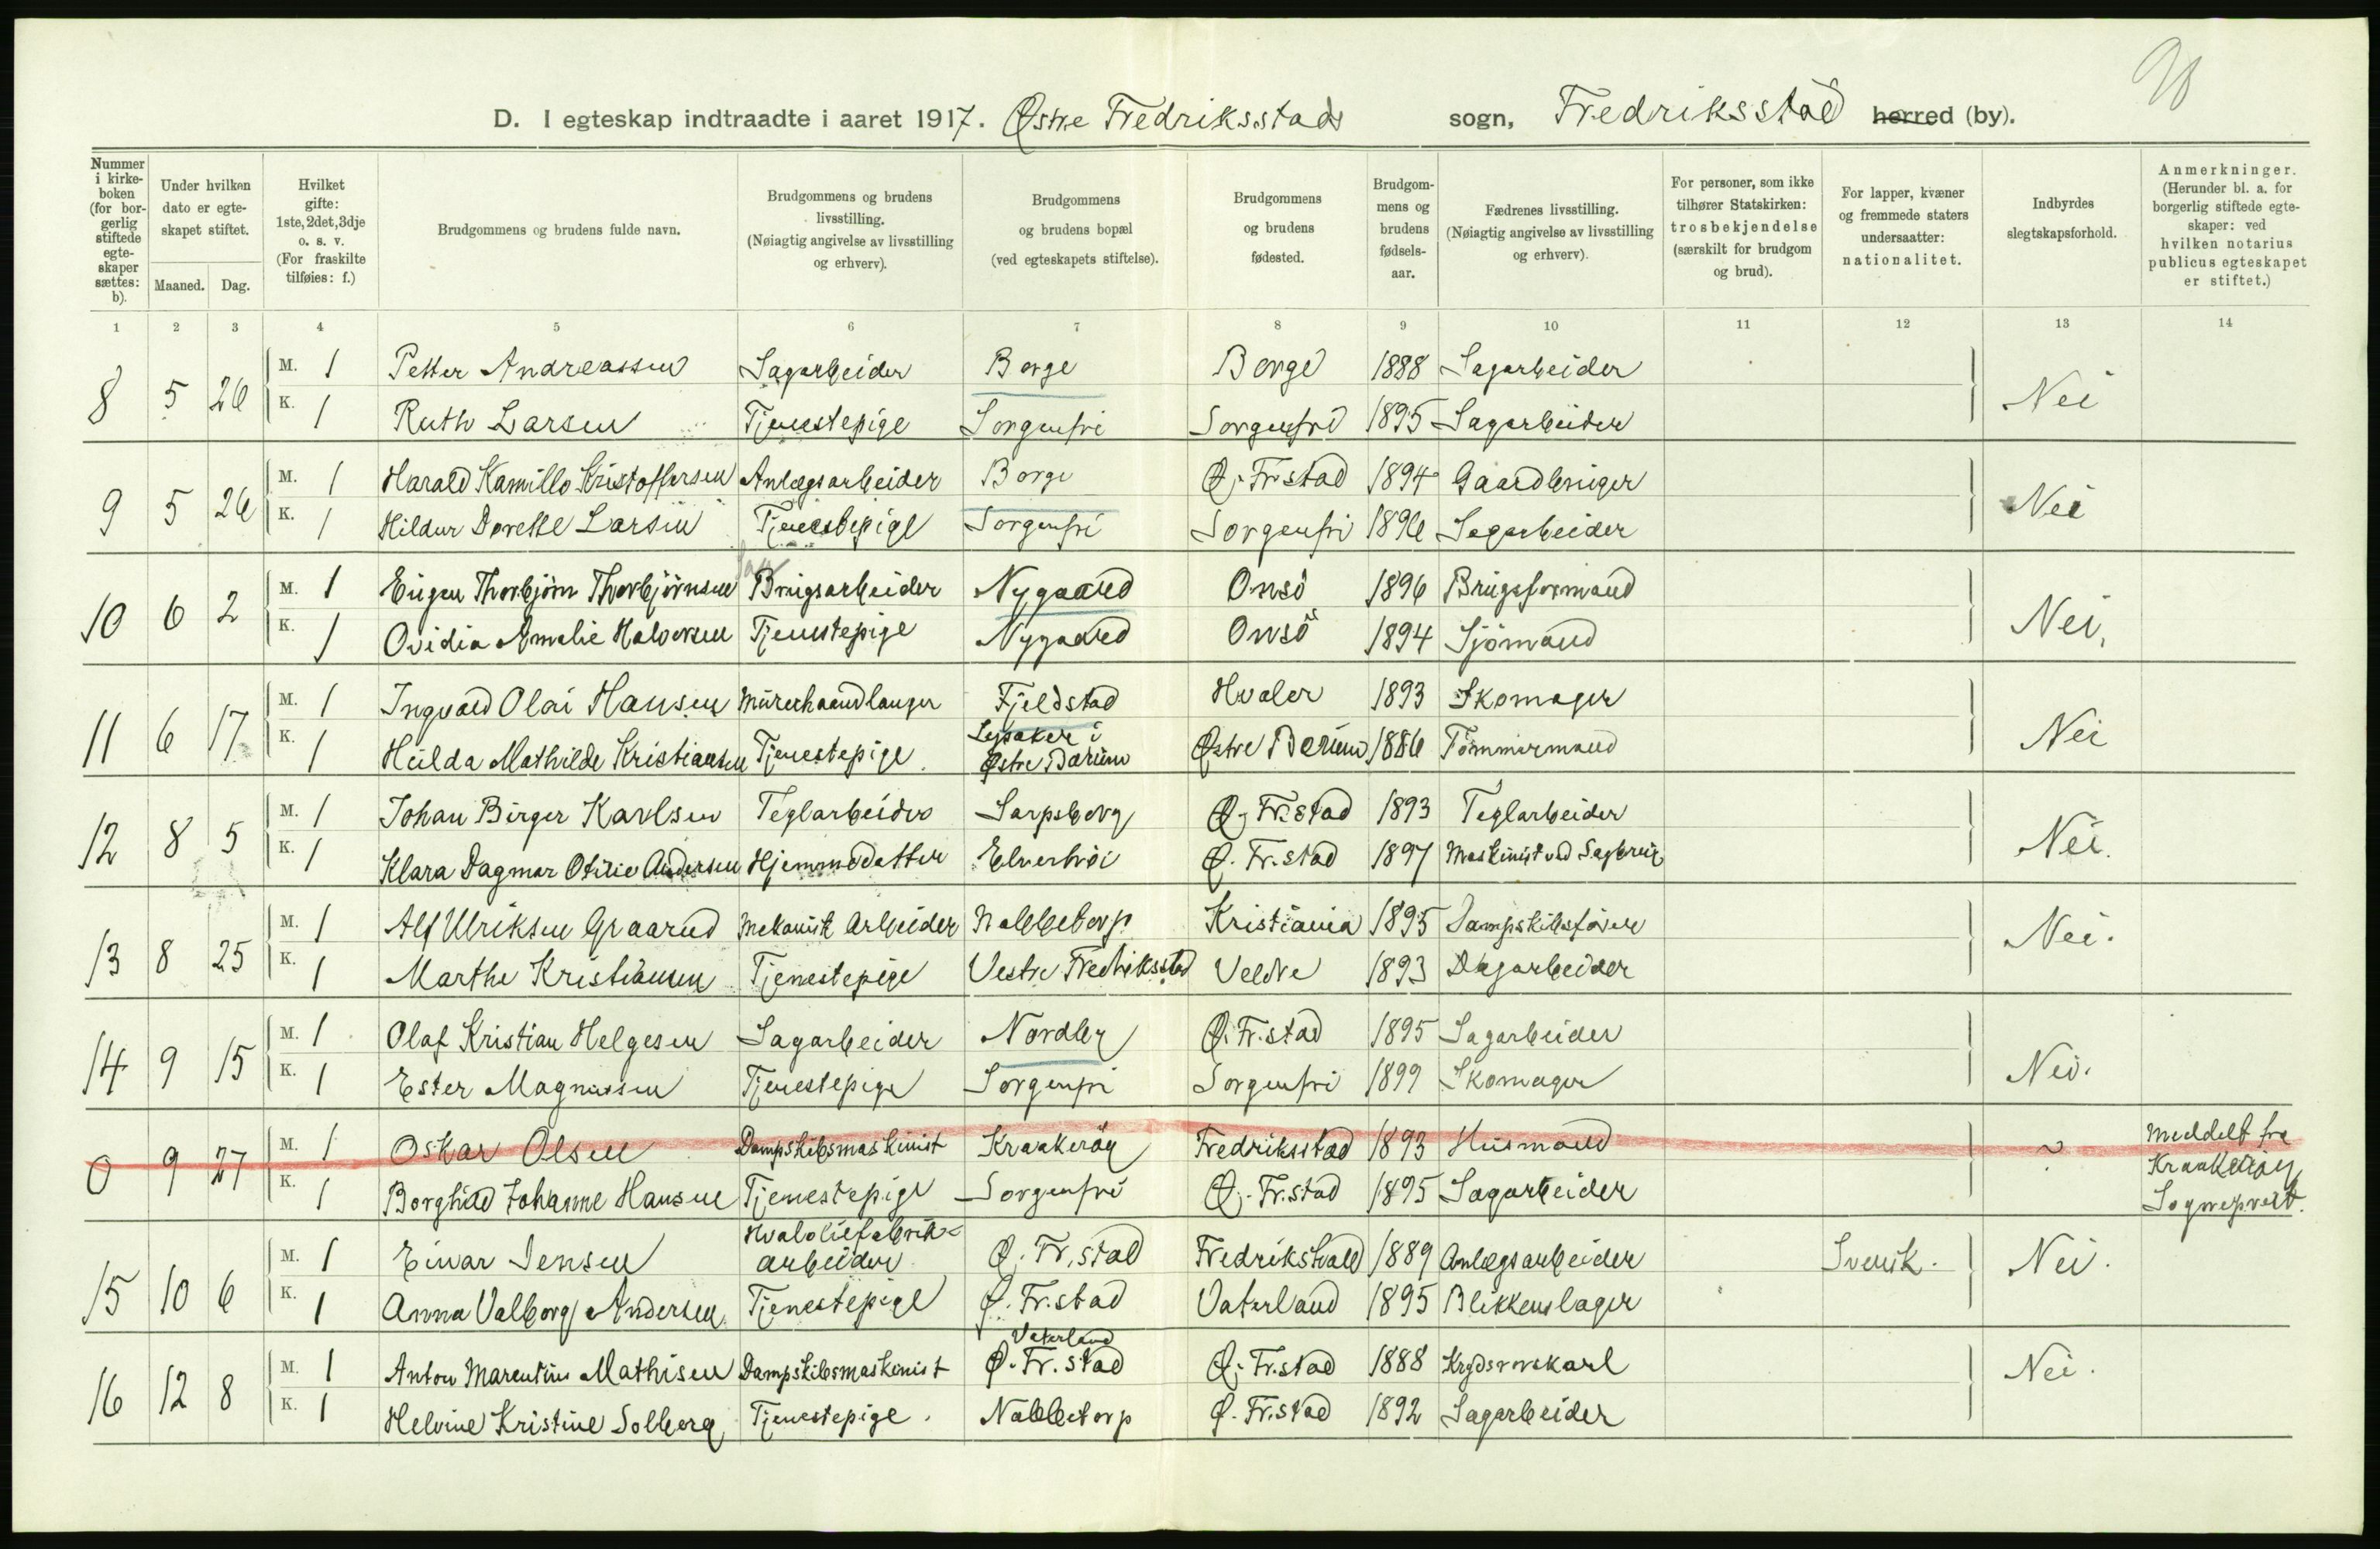 D. I egteskap indtraadte i aaret 1917. Østre Fredriksstads sogn, Fredriksstad herred (by).
Nummer i kirkeboken (for borgerlig stiftede egteskaper sættes: b).
Under hvilken dato er egteskapet stiftet. Maaned. Dag.
Hvilket gifte: 1ste, 2det, 3dje o. s. v. (For fraskilte tilføies: f.)
Brudgommens og brudens fulde navn.
Brudgommens og brudens livsstilling. (Nøiagtig angivelse av livsstilling og erhverv).
Brudgommens og brudens bopæl (ved egteskapets stiftelse).
Brudgommens og brudens fødested.
Brudgommens og brudens fødselsaar.
Fædrenes livsstilling. (Nøiagtig angivelse av livsstilling og erhverv).
For personer, som ikke tilhører Statskirken: trosbekjendelse (særskilt for brudgom og brud).
For lapper, kvæner og fremmede staters undersaatter: nationalitet.
Indbyrdes slegtskapsforhold.
Anmerkninger. (Herunder bl. a. for borgerlig stiftede egteskaper: ved hvilken notarius publicus egteskapet er stiftet.)
1 2 3 4 5 6 7 8 9 10 11 12 13 14
8 5 26 M. 1 Petter Andreassen Sagarbeider Borge Borge 1888 Sagarbeider Nei
K. 1 Ruth Larsen Tjenestepige Sorgenfri Sorgenfri 1895 Sagarbeider
9 5 26 M. 1 Harald Kamillo Kristoffersen Anlægsarbeider Borge Ø. Fr.stad 1894 Gaardbruger Nei
K. 1 Hildur Dorette Larsen Tjenestepige Sorgenfri Sorgenfri 1896 Sagarbeider
10 6 2 M. 1 Eugen Thorbjørn Thorbjørnsen Brugsarbeider Nygaard Onsö 1896 Brugsformand Nei.
K. 1 Ovidia Amalie Halvorsen Tjenestepige Nygaard Onsö 1894 Sjömand
11 6 17 M. 1 Ingvald Olai Hansen Murerhaandlanger Fjeldstad Hvaler 1893 Skomager Nei
K. 1 Hulda Mathilde Kristiansen Tjenestepige. Lysaker i Østre Bærum Østre Bærum 1886 Tömmermand
12 8 5 M. 1 Johan Birger Karlsen Teglarbeider Sarpsborg Ø. Fr.stad 1893 Teglarbeider Nei.
K. 1 Klara Dagmar Otilie Andersen Hjemmedatter Elverhöi Ø. Fr.stad 1897 Maskinist ved Sagbrug
13 8 25 M. 1 Alf Ulriksen Graarud Mekanisk Arbeider Nabbetorp Kristiania 1895 Dampskibsförer Nei.
K. 1 Marthe Kristiansen Tjenestepige Vestre Fredriksstad Veldre 1893 Dagarbeider
14 9 15 M. 1 Olaf Kristian Helgesen Sagarbeider Nordby Ø. Fr.stad 1895 Sagarbeider Nei.
K. 1 Ester Magnussen Tjenestepige Sorgenfri Sorgenfri 1899 Skomager
0 9 27 M. 1 Oskar Olsen Dampskibsmaskinist Kraakeröy Fredriksstad 1893 Husmand ? Meddelt fra
K. 1 Borghild Johanne Hansen Tjenestepige Sorgenfri Ø. Fr.stad 1895 Sagarbeider Kraakeröy Sogneprest.
15 10 6 M. 1 Einar Jensen Hvaloliefabrikarbeider Ø. Fr.stad Fredrikshald 1889 Anlægsarbeider Svensk. Nei.
K. 1 Anna Valborg Andersen Tjenestepige Ø. Fr.stad Vaterland 1895 Blikkenslager
16 12 8 M. 1 Anton Marentius Mathisen Dampskibsmaskinist Vaterland Ø. Fr.stad Ø. Fr.stad 1888 Nei.
K. 1 Helvine Kristine Solberg Tjenestepige. Nabbetorp Ø. Fr.stad 1892 Sagarbeider